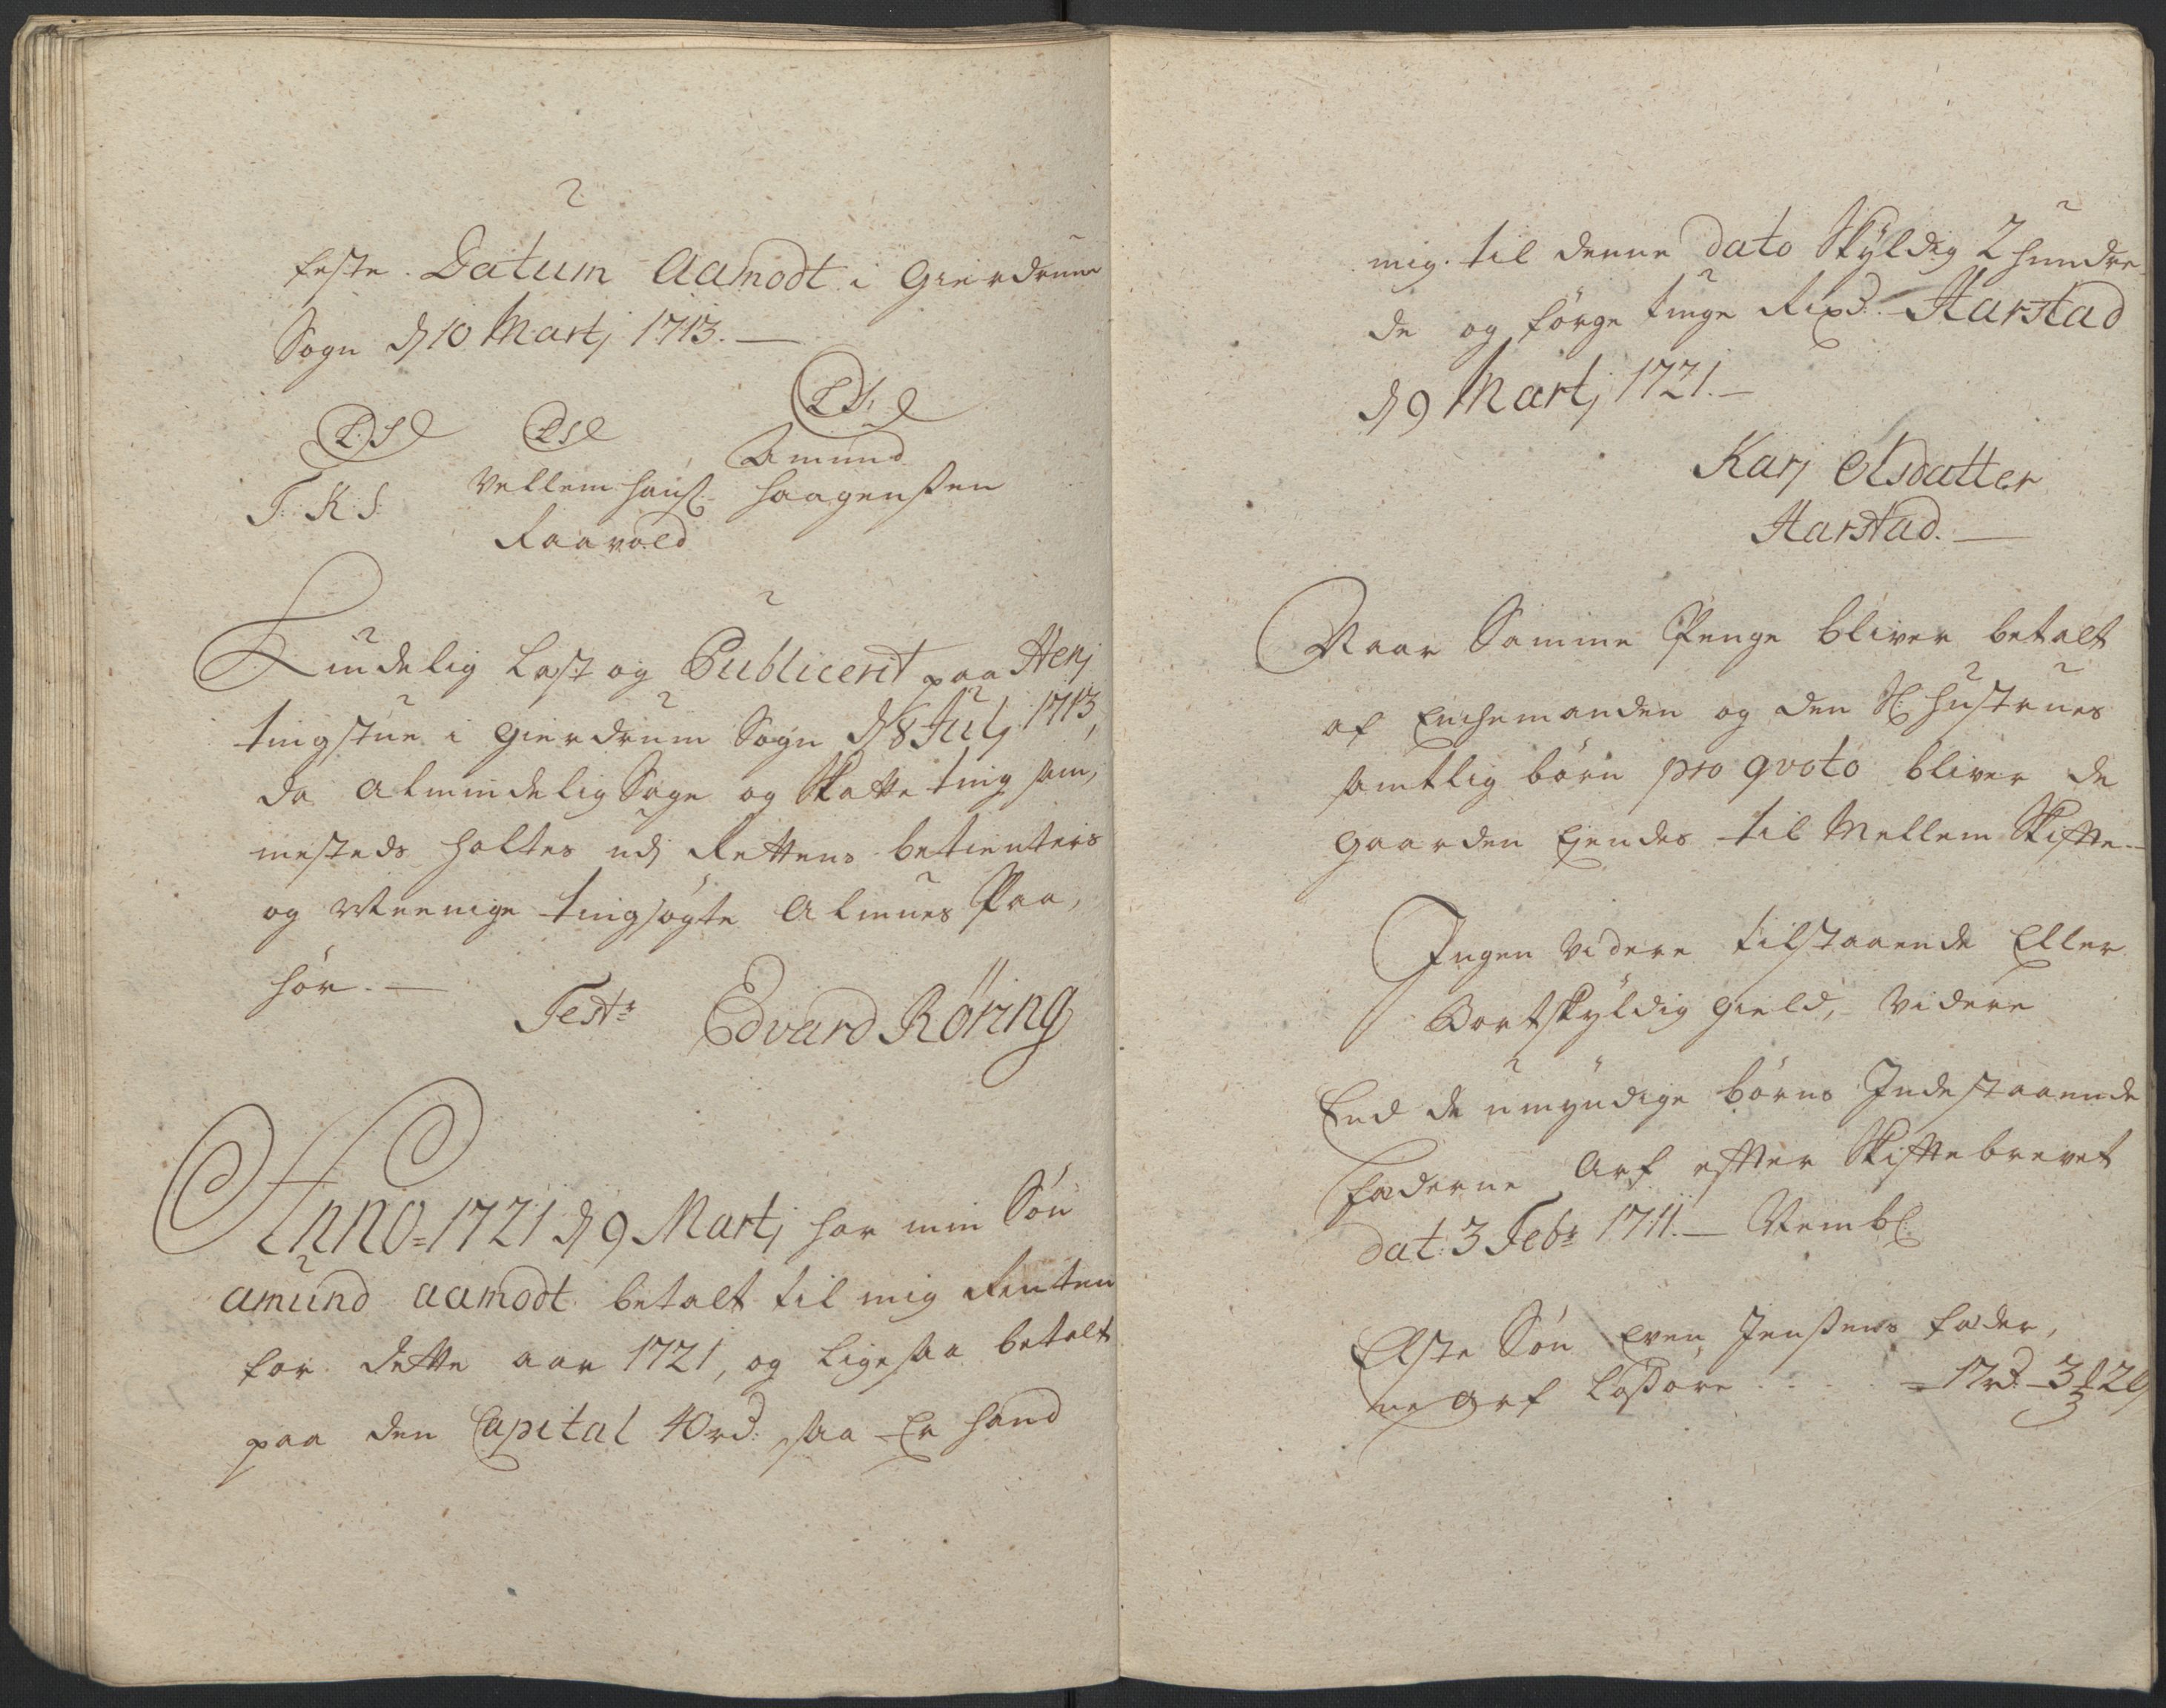 feste. Datum Aamodt i Gierdrum
Sogn d 10 Martj 1713. —
L.S. L.S. L.S.
Amund
T. K. S. Vellem Hanss: Haagenssen
Raavold
Kundelig Læst og Publicerit paa Henj
tingstue i Gierdrum Sogn d 8 Julj 1713,
da almindelig Sage og Skatte ting sam,
mesteds holtes udj Rettens betienters
og Meenige tingsøgte Almues Paa,
hør. —
Test: Edvard Röring
Anno 1721 d 9 Martj har min Søn
Amund Aamodt betalt til mig Renten
for dette aar 1721, og ligesaa betalt
paa den Capital 40 rd: saa Er hand
mig til denne dato Skyldig 2 hundre
de og førge tinge Rixd. Harstad
d 9 Martj 1721. —
Karj Olsdatter
Harstad. —
Naar Samme Penge bliver betalt
af Enchemanden og den Sl: Hustrues
samtlig børn pro qvoto bliver de
gaarden Ejendes til Mellem Skifte. —
Ingen videre tilstaaende Eller
Bortskyldig gield, videre
End de umyndige børns Indestaaende
Fæderne Arf efter Skiftebrevet
dat: 3 Febr: 1711. — Nembl:
Elste Søn Even Jenssens fæder,
ne Arf Løssøre . . . . = 17 rd. 3